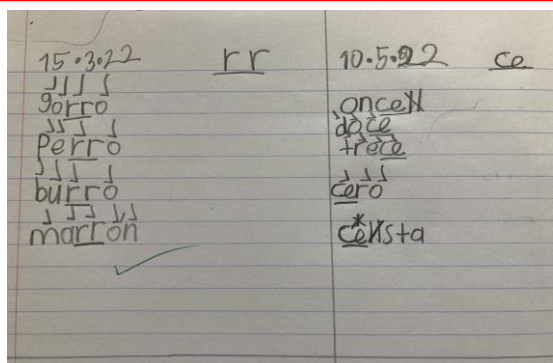 15.3.22 rr
gorro
perro
burro
marrón
10.5.22 ce
once
doce
trece
cero
cesta